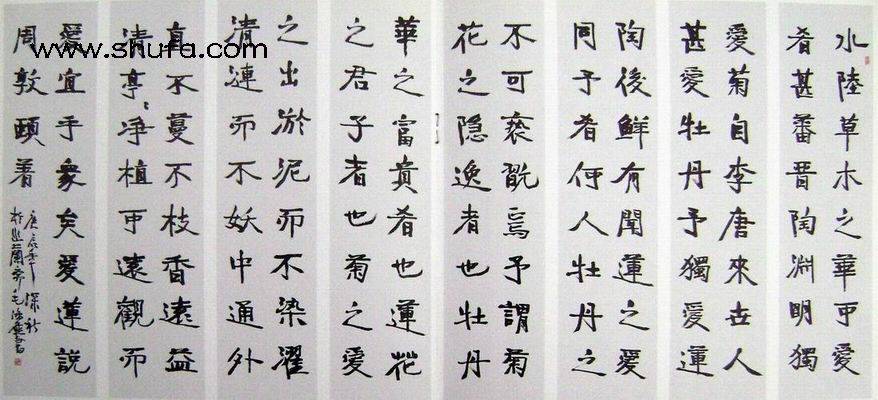 水陸草木之華可愛
者甚蕃晉陶淵明獨
愛菊自李唐來世人
甚愛牡丹予獨愛蓮
陶後鮮有聞蓮之愛
同予者何人牡丹之
不可褻翫焉予謂菊
花之隐逸者也牡丹
華之富貴者也蓮花
之君子者也菊之愛
之出淤泥而不染濯
清漣而不妖中通外
直不蔓不枝香遠益
清亭々净植可遠觀而
愛宜乎衆矣愛蓮説
周敦頤著
庚辰年深秋
於幽蘭齋毛書
www.shufa.com